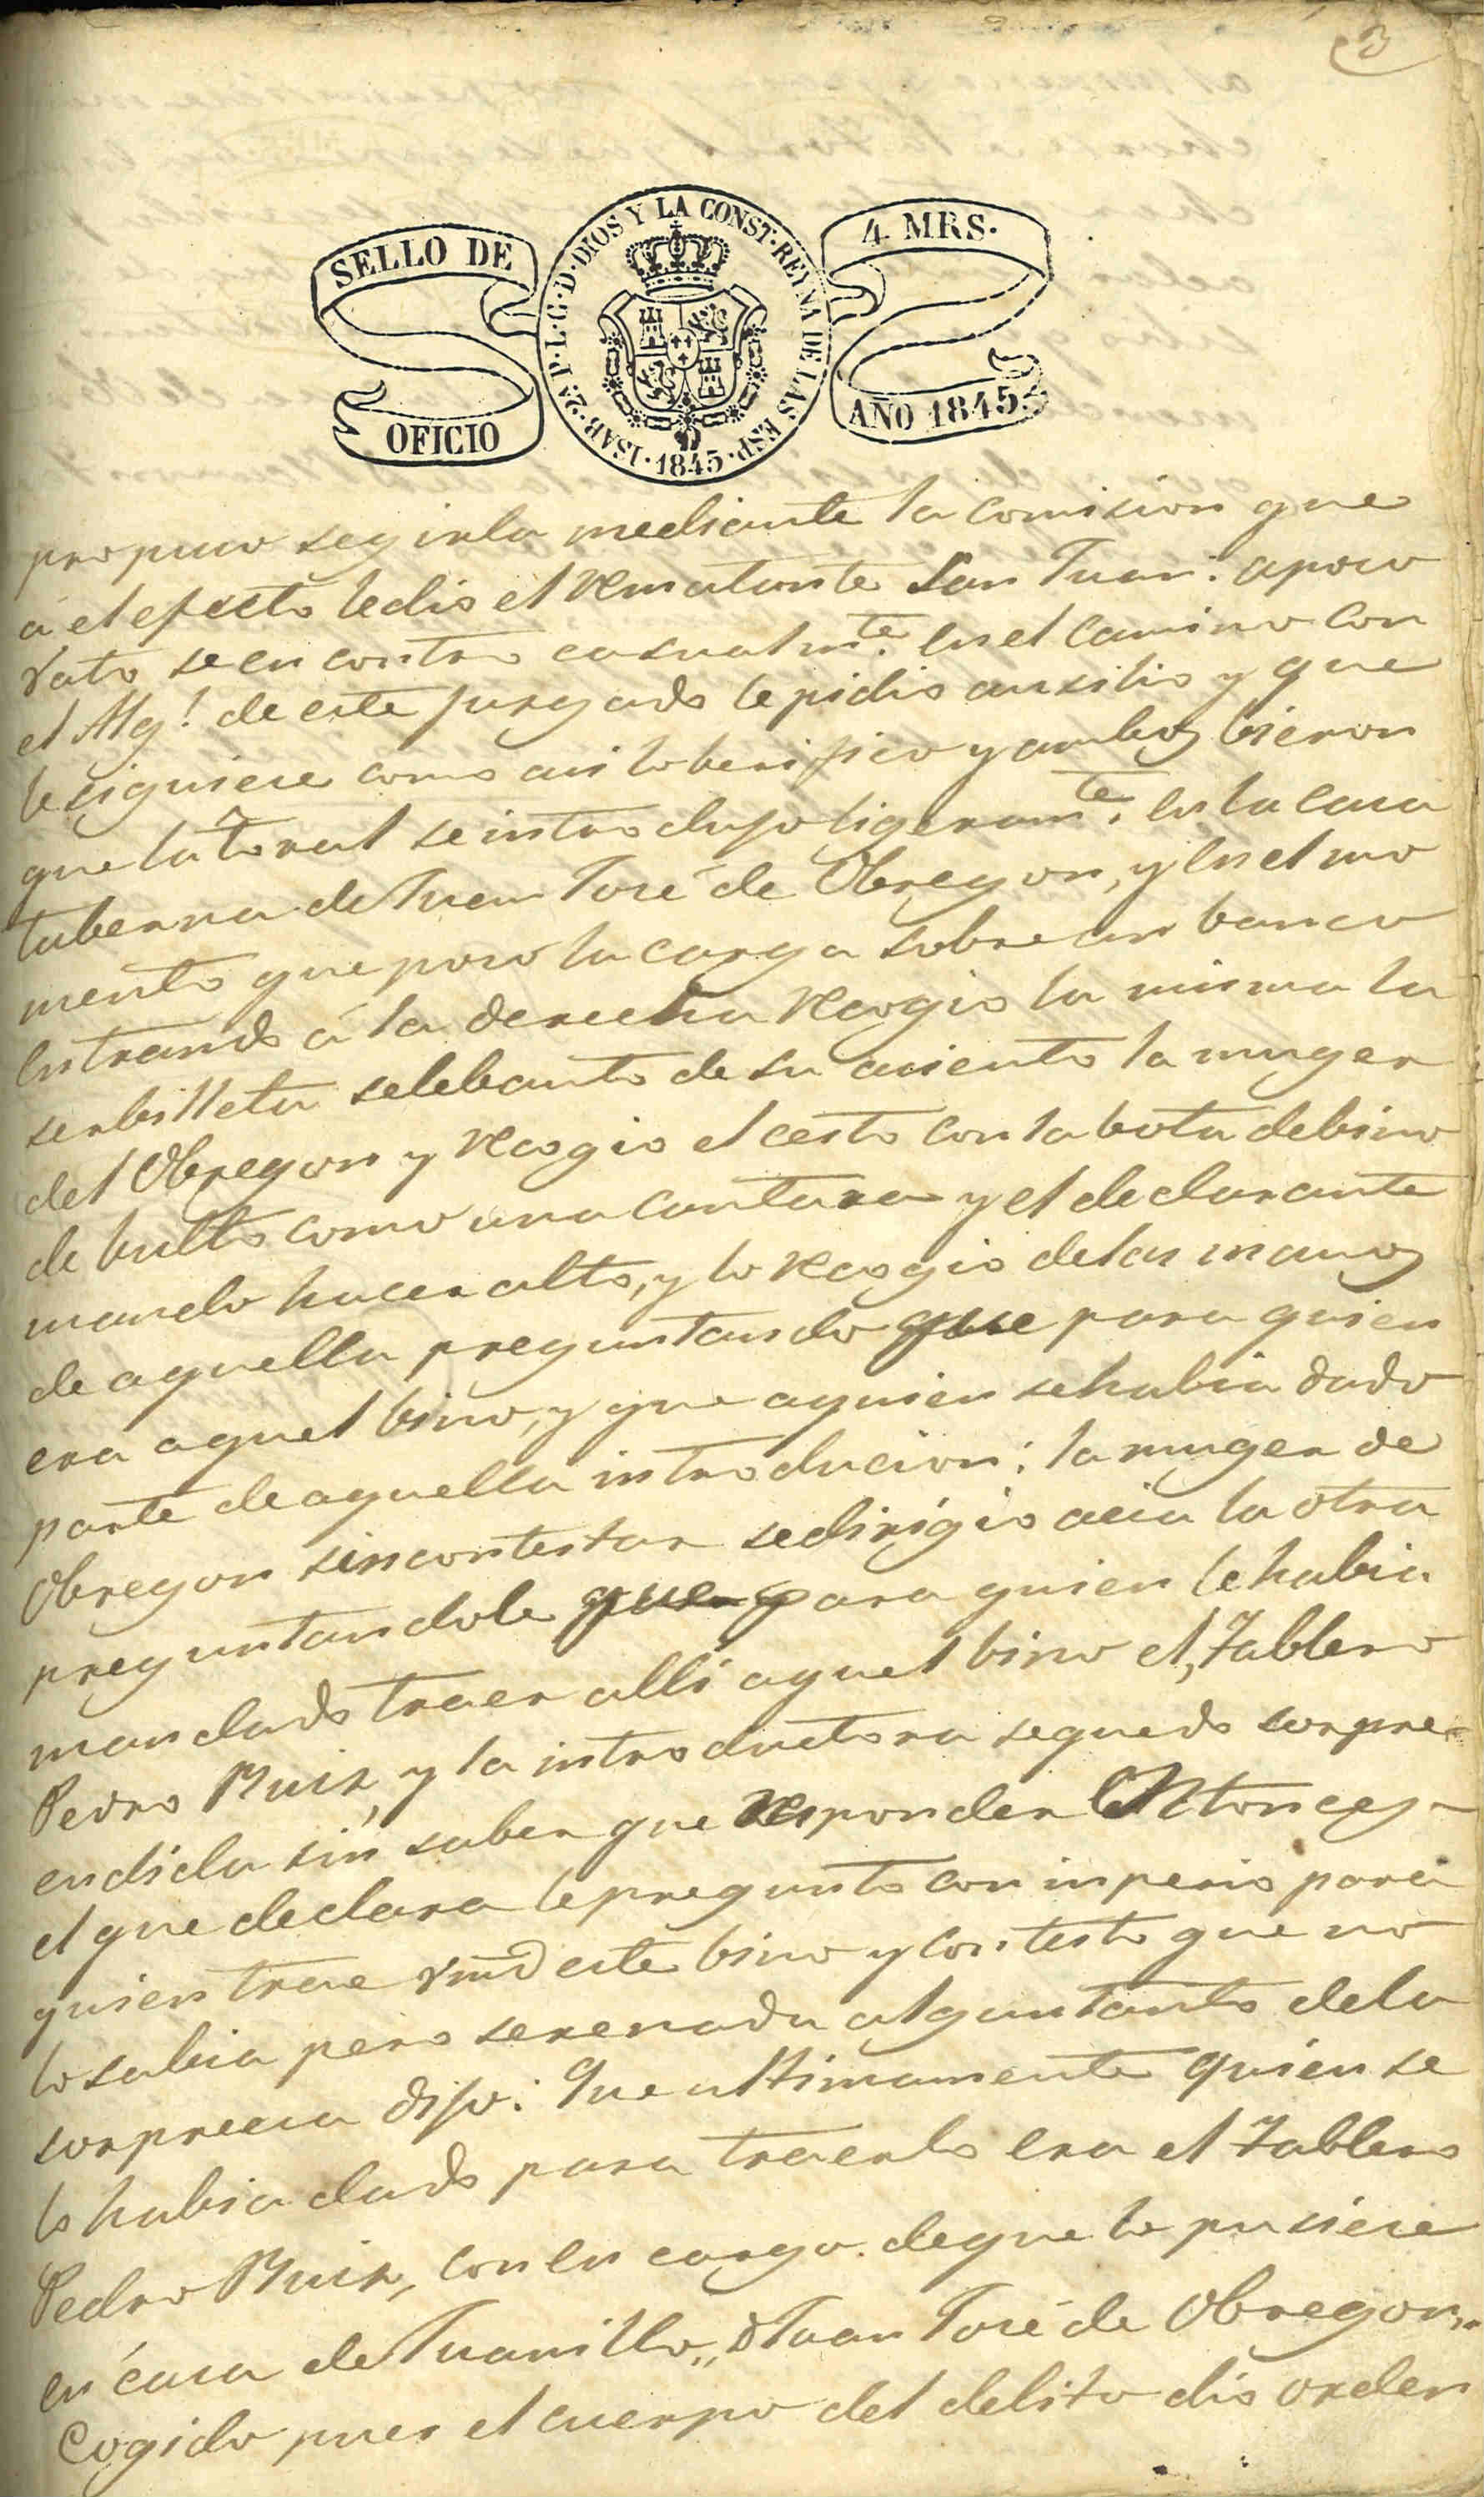 3
SELLO DE
OFICIO
ISAB. 2ª P. L. G. D. DIOS Y LA CONST. REYNA DE LAS ESP. 1845
4 MRS.
AÑO 1845
propuso segirla mediante la comision que
á el efecto ledio el Rematante San Juan: apoco
rato se en contro casualmte. en el camino con
el Alg.l de este Jusgado le pidio ausilio y que
le siguiese como asi lo berifico y ambos bieron
que la Toral se introdujo ligeramte. en la casa
taberna de Juan José de Obregon, y en el mo
mento que poso la carga sobre un banco
entrando á la derecha Recogio la misma la
serbilleta selebanto de su asiento la muger
del Obregon y Recogio el cesto con la bota debino
de bulto como una cantara y el declarante
mando hacer alto, y lo Recogio delas manos
de aquella preguntando que para quien
era aquel bino, y que aquien sehabia dado
parte deaquella introducion: la muger de
Obregon sin contestar sedirigio acia la otra
preguntandole para quien lehabia
mandado traer alli aquel bino el, Tablero
Pedro Ruiz, y la introductora sequedo sorpre-
endida sin saber que Responder Entonces
el que declara lepregunto con inperio para
quien trae vmd este bino y contesto que no
lo sabia pero serenada algun tanto dela
sorpresa dijo: Que ultimamente quien se
lo habia dado para traerlo era el Tablero
Pedro Ruiz, con en cargo. deque le pusiese
en casa de Juanillo,, ó Juan José de Obregon,,
Cogido pues el cuerpo del delito dio orden